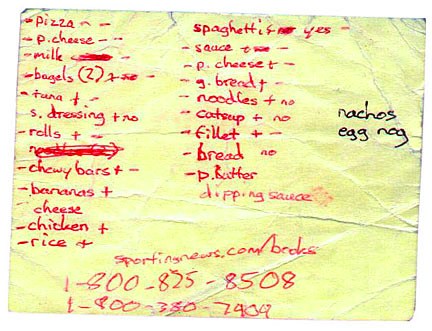 - Pizza - -
- p.cheese - -
- milk -
- bagels (2) + -
- tuna + -
s. dressing + no
- rolls + -
- chewy bars + -
- bananas +
cheese
- chicken +
- rice +
spaghetti yes -
- sauce + -
- p. cheese + -
- g. bread + -
- noodles + no
- catsup + no
- fillet + -
- bread no
- p. butter
dipping sauce
nachos
egg nog
sportingnews.com/books
1-800-825-8508
1-800-380-7909